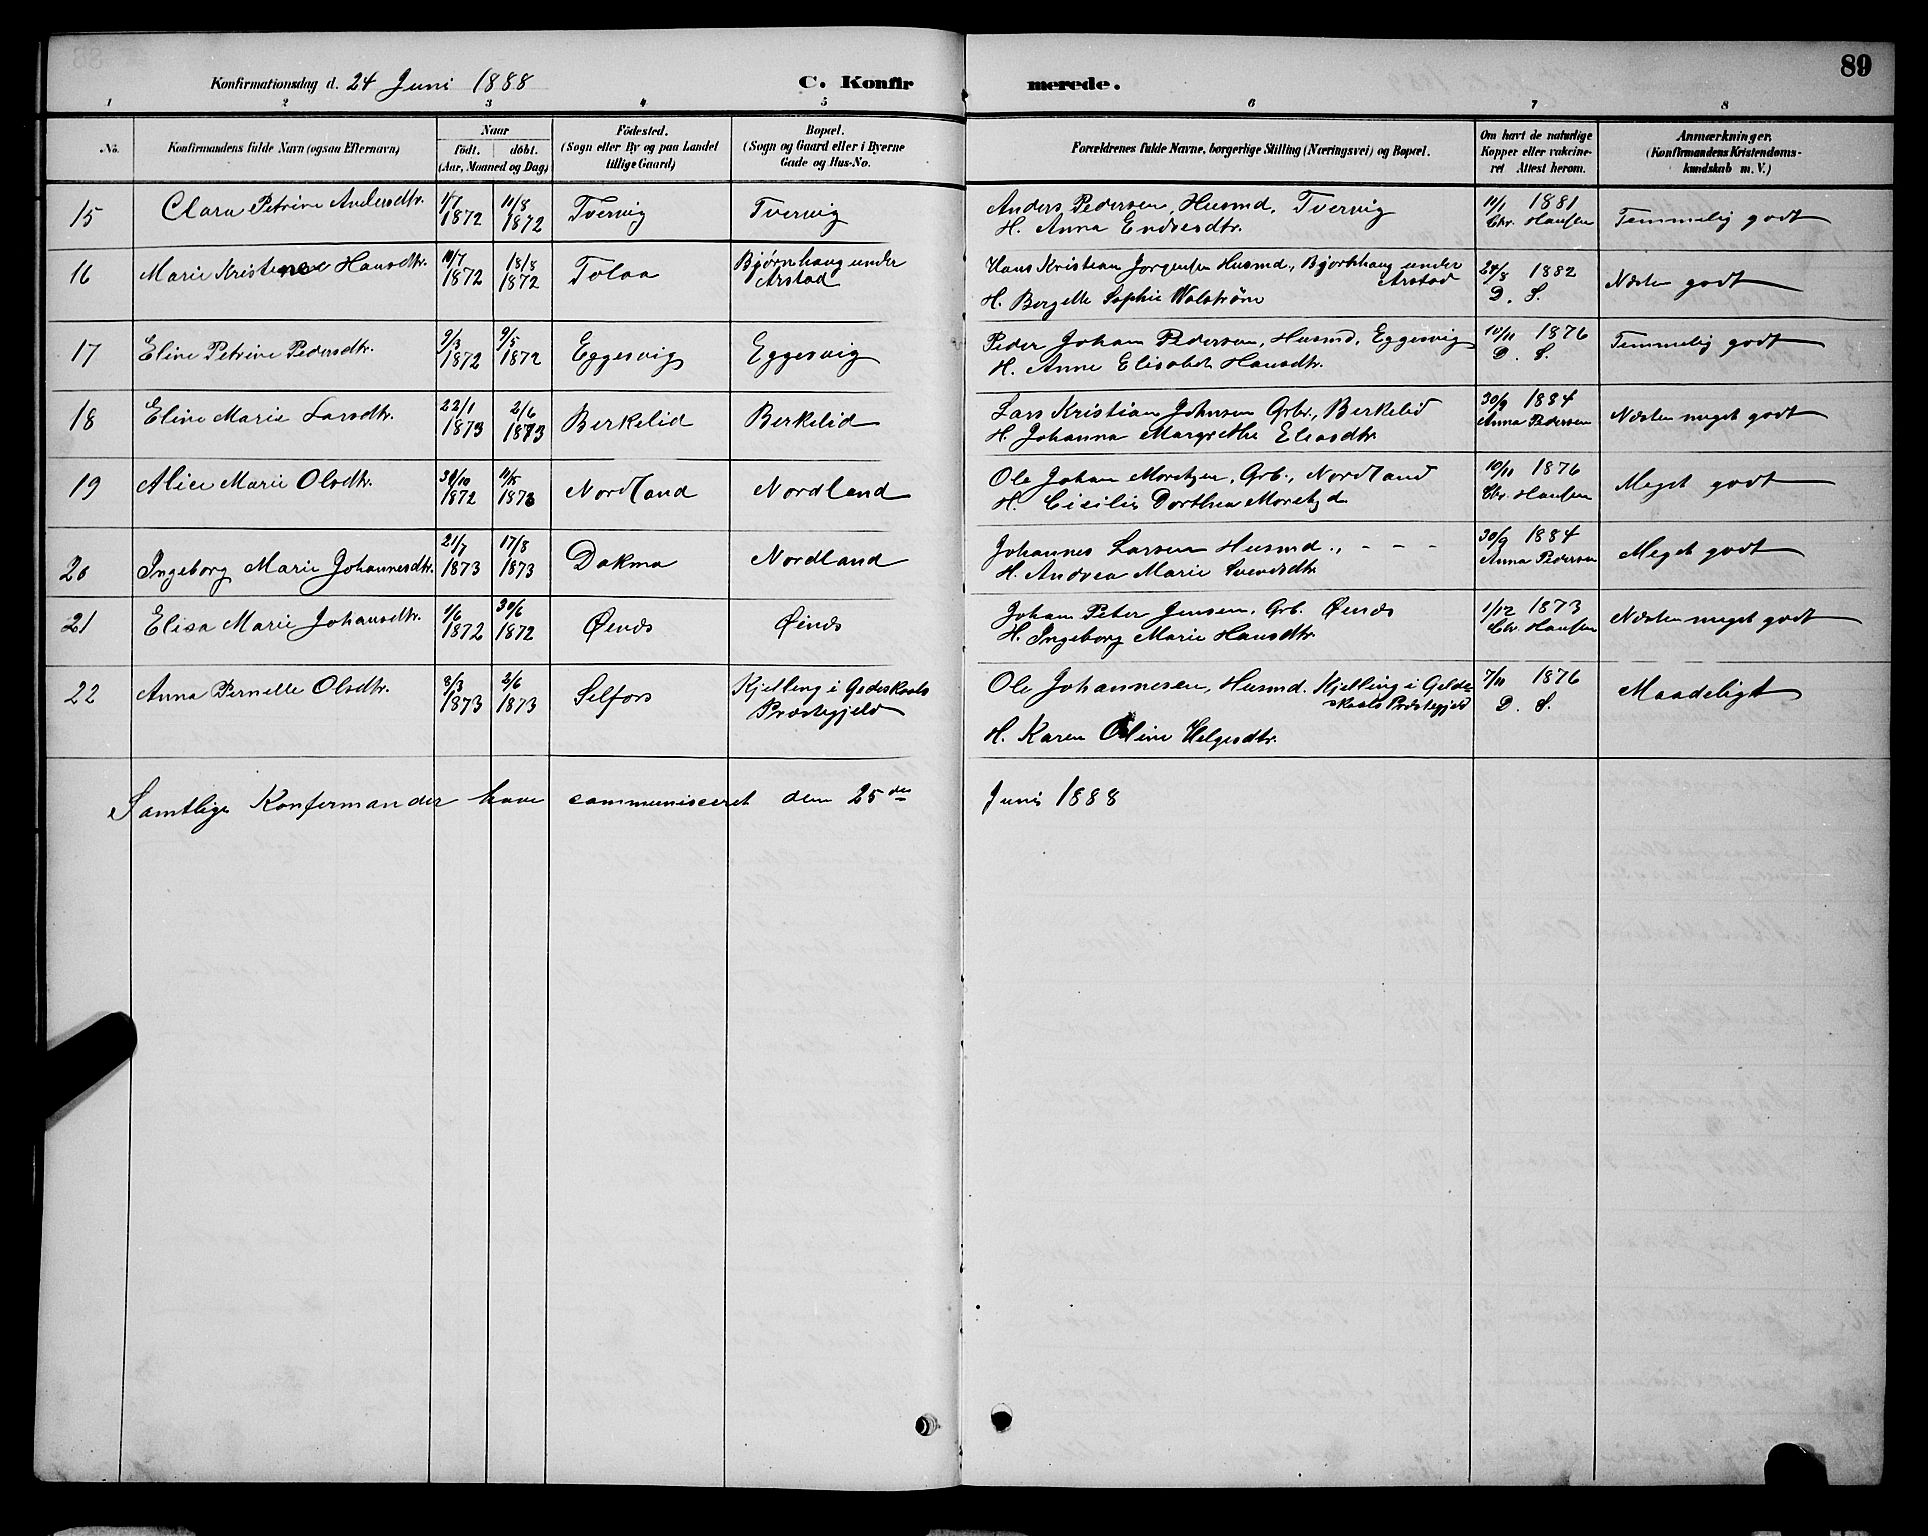 89
Konfirmationsdag d. 24 Juni 1888 C. Konfirmerede.
1 2 3 4 5 6 7 8
No. Konfirmandens fulde Navn (ogsaa Efternavn) Naar født. døbt. (Aar, Maaned og Dag) Fødested. (Sogn eller By og paa Landet tillige Gaard) Bopæl. (Sogn og Gaard eller i Byerne Gade og Hus-No. Forældrenes fulde Navne, borgerlige Stilling (Næringsvei) og Bopæl. Om havt de naturlige Kopper eller vakcineret Attest herom. Anmærkninger. (Konfirmandens Kristendomskundskab m. V.)
15 Clara Petrine Andersdtr. 1/7 1872 11/8 1872 Tvervig Tvervig Anders Pedersen, Husmd, Tvervig 11/1 1881 Temmelig godt
H. Anna Endresdtr. Chr. Hansen
16 Marie Kristine Hansdtr. 10/7 1872 18/8 1872 Tolaa Bjørnhaug under Arstad Hans Kristian Jørgensen Husmd., Bjørkhaug under Arstad 24/8 1882 Næsten godt
H. Bergette Sophie Walstrøm D. S.
17 Eline Petrine Pedersdtr. 9/3 1872 9/5 1872 Eggesvig Eggesvig Peder Johan Pedersen, Husmd, Eggesvig 10/11 1876 Temmelig godt
H. Anne Elisabet Hansdtr. D. S.
18 Eline Marie Larsdtr. 22/1 1873 2/6 1873 Berkelid Berkelid Lars Kristian Johnsen Grbr., Berkelid 30/9 1884 Næsten meget godt
H. Johanna Margrethe Eliasdtr. Anna Pedersen
19 Alice Marie Olsdtr. 1872 1873 Nordland Nordland Ole Johan Moretzen, Grb., Nordland 10/11 1876 Meget godt
H. Cisilie Dorthea Moretzd Chr. Hansen
20 Ingeborg Marie Johannesdtr. 21/7 1873 17/8 1873 Dokmo Nordland Johannes Larsen Husmd., - - - 30/9 1884 Meget godt
H. Andrea Marie Svendsdtr. Anna Pedersen
21 Elisa Marie Johansdtr. 1/6 1872 30/6 1872 Øinæs Øinæs Johan Peter Jensen, Grb. Øinæs 1/12 1873 Næsten meget godt
H. Ingeborg Marie Hansdtr. Chr. Hansen
22 Anna Pernelle Olsdtr. 8/3 1873 2/6 1873 Selfors Kjelling i Gedeskaals Præstegjeld Ole Johannesen, Husmd. Kjelling i Gildeskaals Præstegjeld 7/11 1876 Maadeligt
H. Karen Oline Helgesdtr. D. S.
Samtlige Konfermander have communiceret den 25de Juni 1888